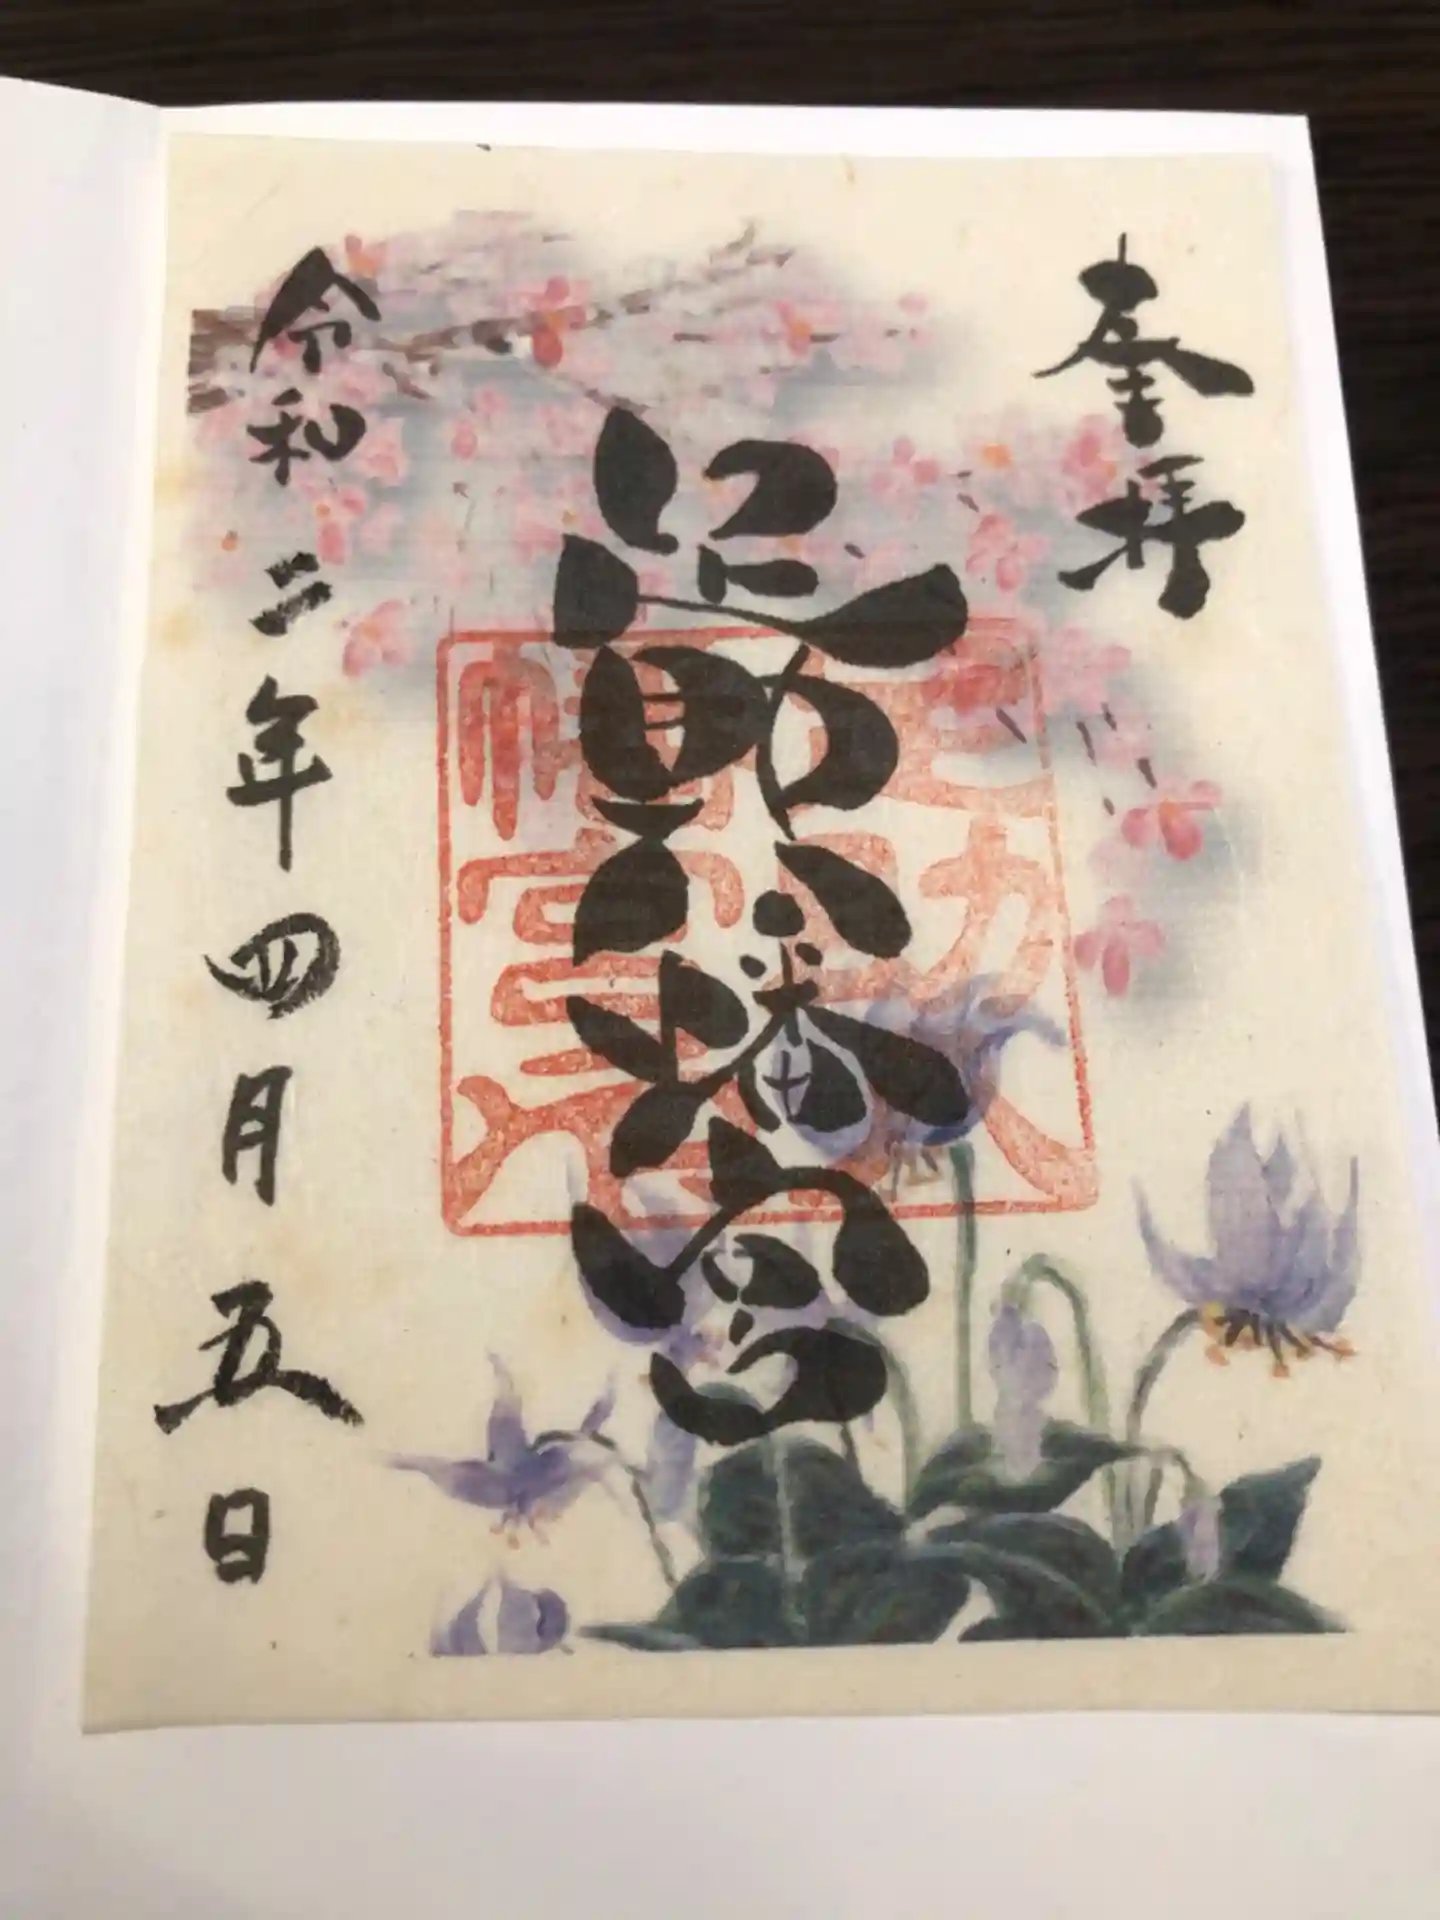 奉拝
八幡宮
令和二年四月五日